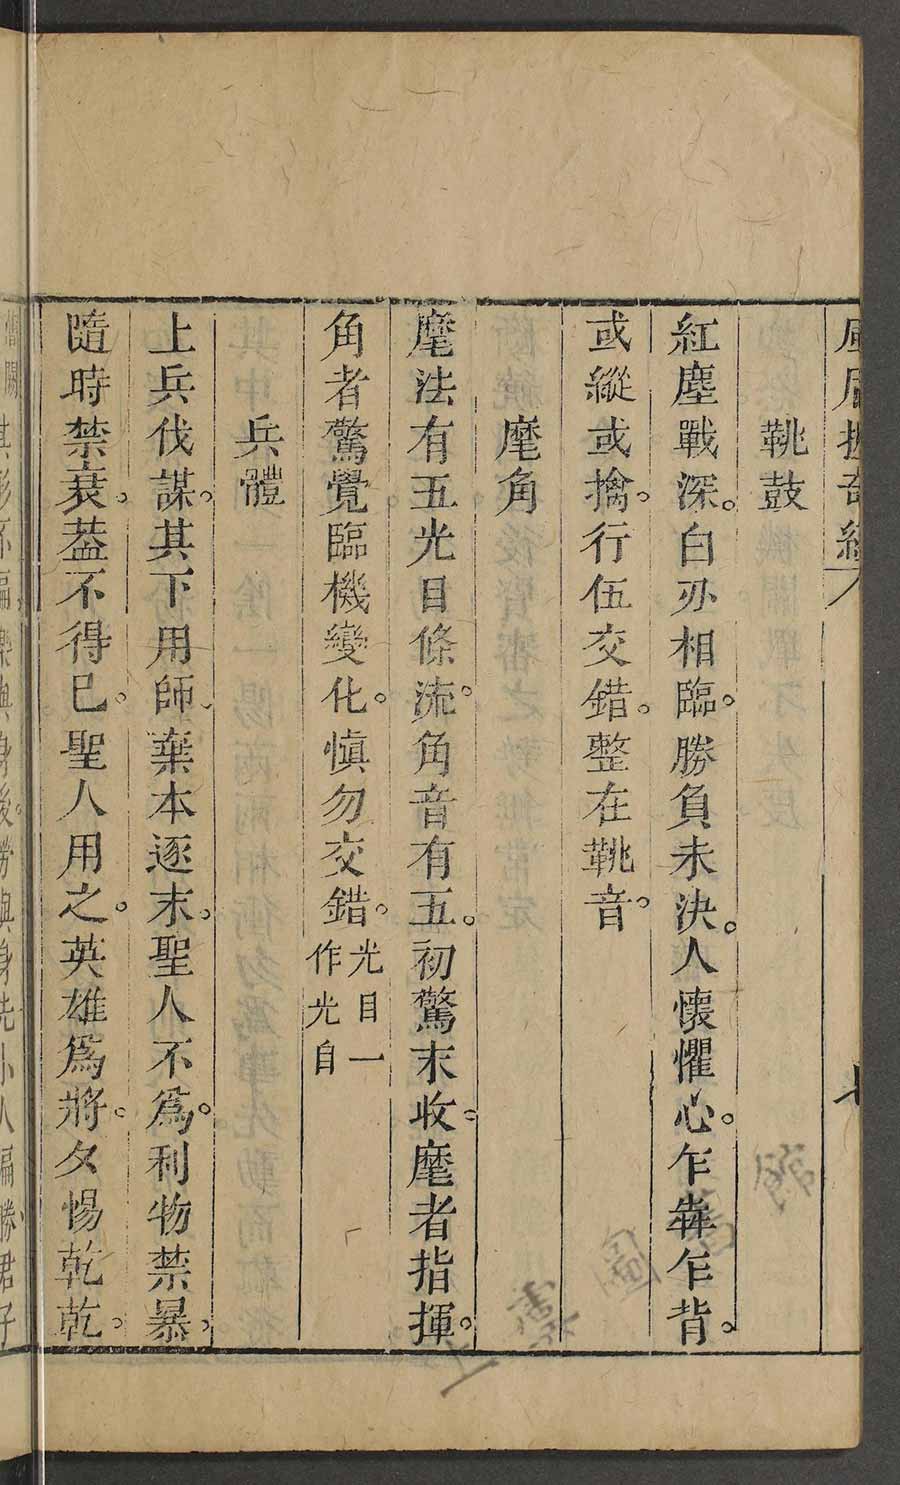 鞉鼓
紅塵戰深。白刃相臨。勝負未決。人懷懼心。乍犇乍背。
或縱或擒。行伍交錯。整在鞉音。
麾角
麾法有五光目條流。角音有五。初驚末收。麾者指揮。
角者驚覺臨機變化。愼勿交錯。
光目一
作光自
兵體
上兵伐謀。其下用師、棄本逐末。聖人不爲。利物禁暴。
隨時禁衰。葢不得已。聖人用之。英雄爲將。夕惕乾乾。